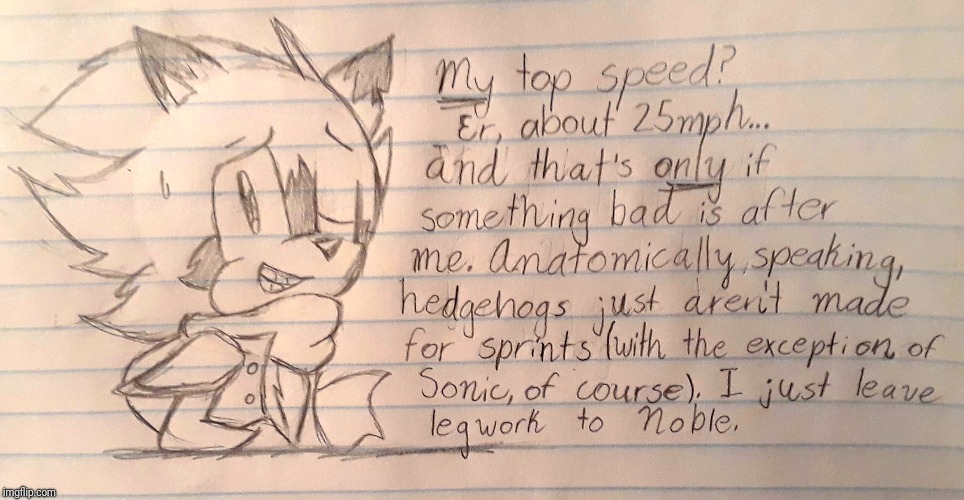 My top speed?
Er, about 25mph...
and that's only if
something bad is after
me. Anatomically speaking,
hedgehogs just aren't made
for sprints (with the exception of
Sonic, of course). I just leave
legwork to Noble.
imgflip.com